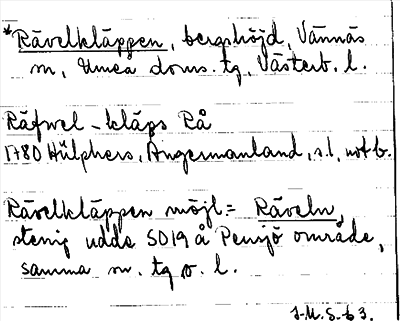 *Rävelkläppen, bergshöjd, Vännäs
sn, Umeå doms. tg, Västerb. l.
Räfwel-kläps Rå
1780 Hülphers, Ångermanland, s.1, not b.
Rävelkläppen möjl. = Räveln,
stenig udde SO19 å Pengsjö område,
samma sn, tg o. l.
J.M. S-63.